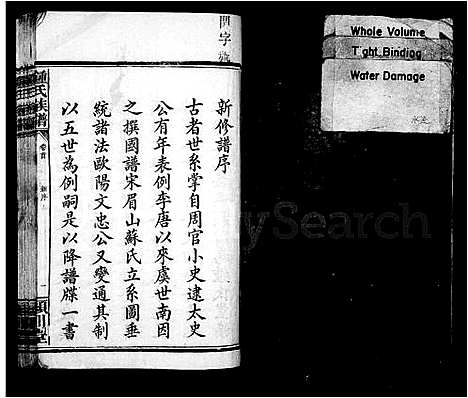 新修譜序
古者世系掌自周官小史逮太史
公有年表例李唐以來虞世南因
之撰國譜宋眉山蘇氏立系圖垂
統諸法歐陽文忠公又變通其制
以五世為例嗣是以降譜牒一書
鍾氏族譜
卷首
新序
一
潁川堂
Whole Volume
Tight Binding
Water Damage
水漬